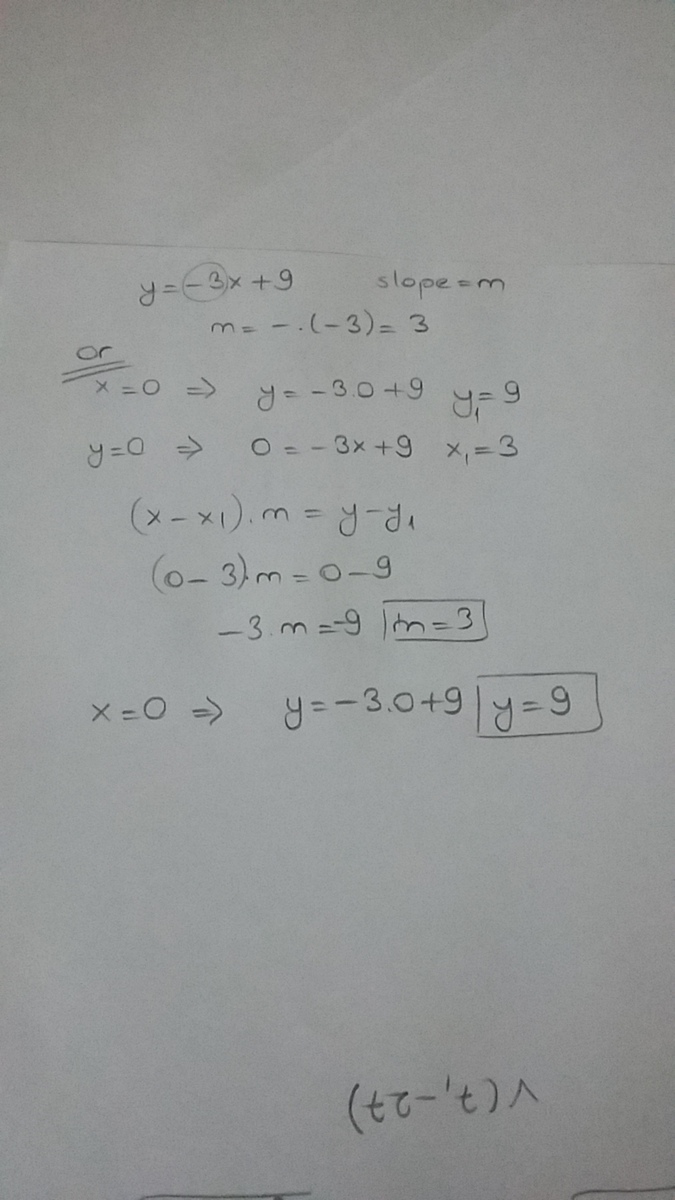 y = -3x + 9 slope = m
m = - . (-3) = 3
or
x = 0 ⇒ y = -3.0 + 9 y₁ = 9
y = 0 ⇒ 0 = -3x + 9 x₁ = 3
(x - x₁) . m = y - y₁
(0 - 3) . m = 0 - 9
-3 . m = -9 m = 3
x = 0 ⇒ y = -3.0 + 9 y = 9
V (7, -27)